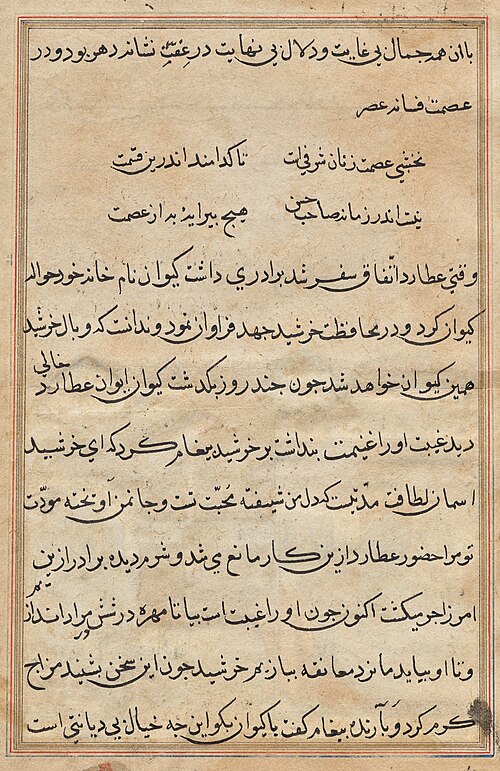 با ان همه جمال بی غایت و دلال بی نهایت در عفت نشانه دهر بود و در
عصمت فسانه عصر
نخشبی عصمت زنان شرفی است تا کدامند اندرین قسمت
نیست اندر زمانه صاحب حسن هیچ پیرایهٔ به از عصمت
وقتی عطارد اتفاق سفر شد برادری داشت کیوان نام خانه خود حواله
کیوان کرد و در محافظت خرشید جهد فراوان نمود و ندانست که وبال خرشید
همین کیوان خواهد شد جون جند روز بگذشت کیوان ایوان عطارد خالی
دید غیبت او را غنیمت پنداشت بر خرشید پیغام کرد که ای خرشید
اسمان لطافت مدتیست که دل من شیفته محبت تست و جانمن آویخته مودت
تو مرا حضور عطارد ازین کار مانع می شد و شرم دیده برادر ازین
امر زاجر میکشت اکنون جون او را غیبت است بیا تا مهره در شش مراد اندازیم
و تا او بیاید ما نرد معانقه ببازیم خرشید جون این سخن بشنید مزاج
کرم کرد و بآرنده پیغام کفت با کیوان بکو این جه خیال بی دیانتی است